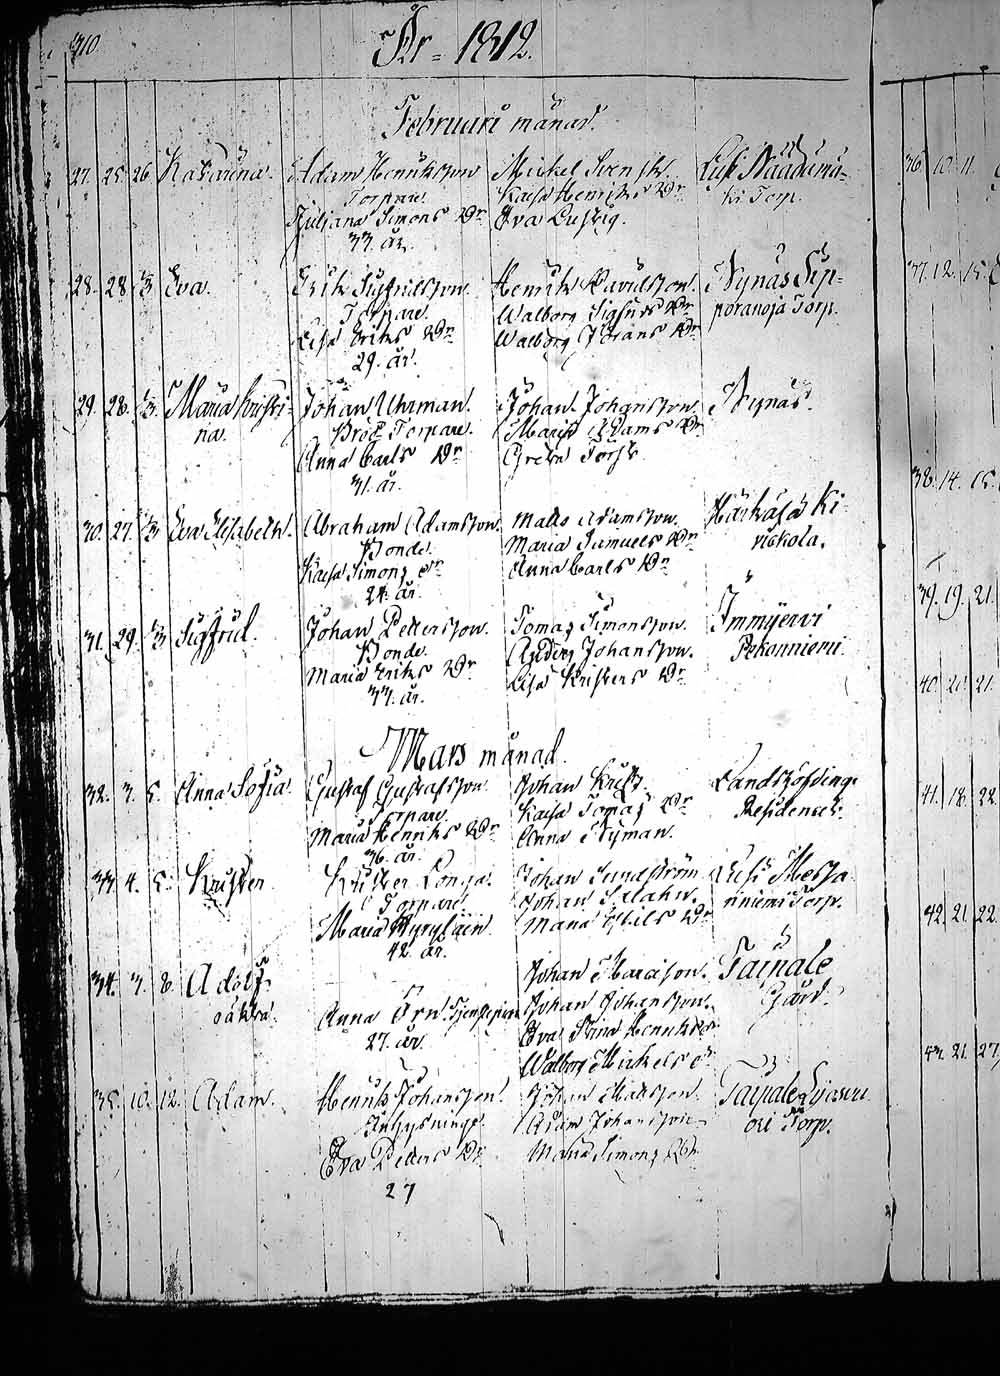 310.
År = 1812.
Februari månad.
27. 25 26 Katarina. Adam Henriksson Mickel Svensk.
Torpare. Kaisa Henriks Dr ki Torp.
Juliana Simons Dr Eva Lustig.
33 år.
28. 28 1/3 Eva. Erik Sigfridsson. Henrik Davidsson. Nynäs Sip-
Torpare. Walborg Sigfrids Dr poranoja Torp.
Lisa Eriks Dr Walborg Jörans Dr
29. år.
29. 28. 1/3. Maria Kristi- Johan Uhrman. Johan Johansson. Nynäs.
na. Torpare. Maria Adams Dr
Anna Carls Dr Greta
31. år.
30. 27. 1/3 Eva Elisabeth. Abraham Adamsson. Matts Adamsson. Härkälä Ki-
Bonde. Maria Samuels Dr viskola.
Kaisa Simons Dr Anna Carls Dr
24. år.
31. 29. 1/3 Sigfrid. Johan Pettersson. Tomas Simonsson. Immijervi
Bonde. Anders Johansson. Pekonniemi.
Maria Eriks Dr Lisa Kristers Dr
33. år.
Mars månad.
32. 3. 5. Anna Sofia. Gustaf Gustafsson. Johan Landshöfdinge
Torpare. Kaisa Tomas Dr Residenset.
Maria Henriks Dr Anna Nyman.
36. år.
33. 4. 5. Krister Krister Longa. Johan Sundström
Torpare. Johan niemi Torp.
Maria Hyryläin Maria Nils Dr
42. år.
34. 3. 8. Adolf. Johan Taipale
oäkta. Anna Örn. Johan Johansson. Gård.
27. år. Eva Stina Henriks Dr
Walborg Mickels Dr
35. 10. 12. Adam. Henrik Johansson. Johan Mattsson. Taipale
Adam Johansson Torp.
Eva Petters Dr Maria Simons Dr
27
36. 12. 11.
37. 12. 15.
38. 14. 15.
39. 19. 21.
40. 21. 21.
41. 18. 22.
42. 21. 22.
43. 21. 27